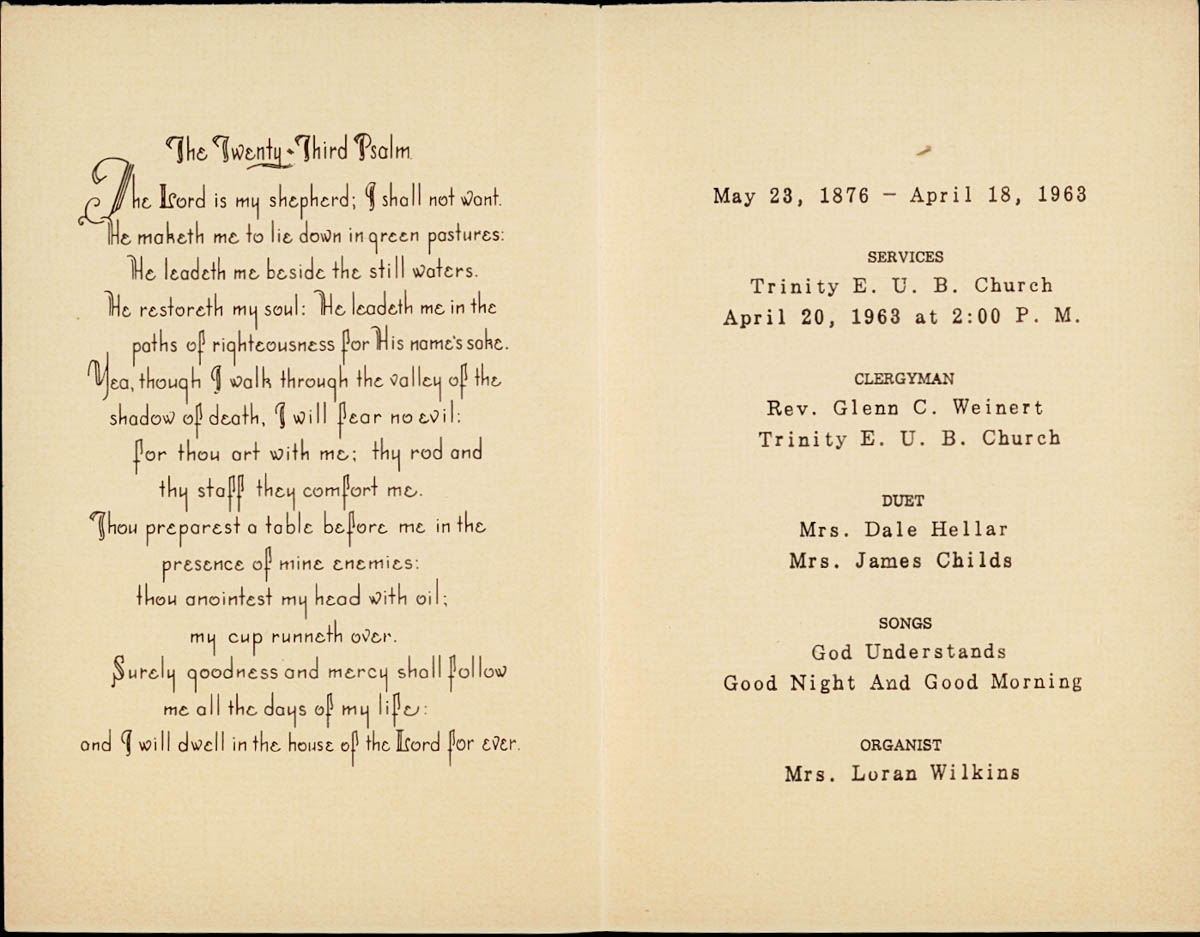 The Twenty-Third Psalm
The Lord is my shepherd; I shall not want.
He maketh me to lie down in green pastures:
He leadeth me beside the still waters.
He restoreth my soul: He leadeth me in the
paths of righteousness for His name's sake.
Yea, though I walk through the valley of the
shadow of death, I will fear no evil:
for thou art with me; thy rod and
thy staff they comfort me.
Thou preparest a table before me in the
presence of mine enemies:
thou anointest my head with oil;
my cup runneth over.
Surely goodness and mercy shall follow
me all the days of my life:
and I will dwell in the house of the Lord for ever.
May 23, 1876 - April 18, 1963
SERVICES
Trinity E. U. B. Church
April 20, 1963 at 2:00 P. M.
CLERGYMAN
Rev. Glenn C. Weinert
Trinity E. U. B. Church
DUET
Mrs. Dale Hellar
Mrs. James Childs
SONGS
God Understands
Good Night And Good Morning
ORGANIST
Mrs. Loran Wilkins